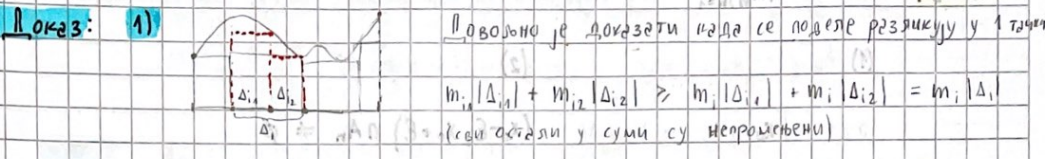 Доказ: 1)
Довољно је доказати када се поделе разликују у 1 тачки
Δi1 Δi2
Δi
mi1|Δi1| + mi2|Δi2| ≥ mi|Δi1| + mi|Δi2| = mi|Δi|
(сви остали у суми су непромењени)